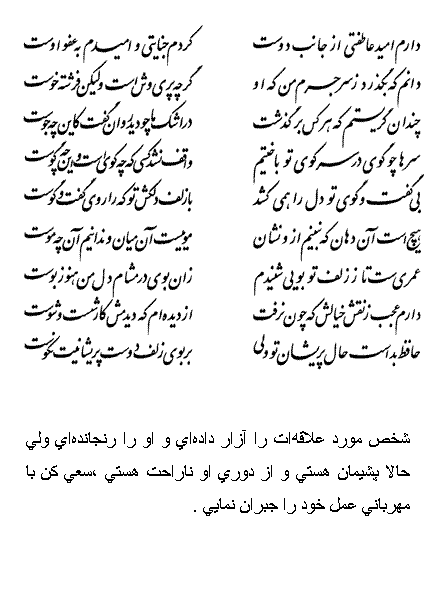 دارم امید عاطفتی از جانب دوست کردم جنایتی و امیدم به عفو اوست
دانم که بگذرد ز سر جرم من که او گرچه پری وش است ولیکن فرشته خوست
چندان گریستم که هر کس برگذشت در اشک ما چو دید روان گفت کاین چه جوست
سرها چو گوی در سر کوی تو باختیم واقف نشد کسی که چه گوی است و این چه کوست
بی گفت و گوی تو دل را همی کشد با زلف دلکش تو که را روی گفت و گوست
هیچ است آن دهان که نبینم از و نشان موییست آن میان و ندانم آن چه موست
عمری ست تا ز زلف تو بویی شنیدم زان بوی در مشام دل من هنوز بوست
دارم عجب ز نقش خیالش که چون نرفت از دیده ام که دیدمش کار شست و شوست
حافظ بد است حال پریشان تو ولی بر بوی زلف دوست پریشانیت نکوست
شخص مورد علاقه‌ات را آزار داده‌اي و او را رنجانده‌اي ولي
حالا پشيمان هستي و از دوري او ناراحت هستي ،سعي كن با
مهرباني عمل خود را جبران نمايي .